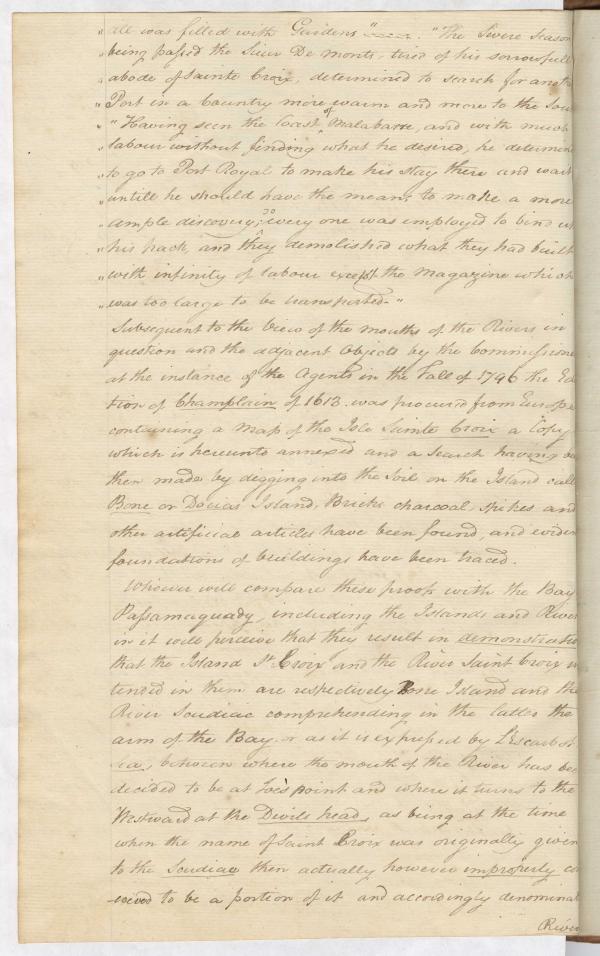 " all was filled with Gardens" "The Sivere Season
" being passed the Sieur De monts, tired of his sorrowfull
" abode of Sainte Croix, determined to search for anoth
" Port in a Country more warm and more to the Sou
" "Having seen the Coast of Malabarre, and with much
" labour without finding what he desired, he determin
" to go to Port Royal to make his stay there and wait
" untill he should have the means to make a more
" ample discovery; so every one was employed to bind u
" his pack, and they demolished what they had built
" with infinity of labour except the Magazine which
" was too large to be transported."
Subsequent to the View of the mouths of the Rivers in
question and the adjacent Objects by the Commissione
at the instance of the Agents in the Fall of 1796 the Ed
tion of Champlain of 1613. was procured from Europe
containing a Map of the Isle Sainte Croix a Copy
which is hereunto annexed and a search having be
then made by digging into the Soil on the Island call
Bone or Docias Island, Bricks charcoal, spikes and
other artificial articles have been found, and eviden
foundations of buildings have been traced.
Whoever will compare these proofs with the Bay
Passamaquady, including the Islands and River
in it will perceive that they result in demonstratio
that the Island St Croix and the River Saint Croix in
tended in them are respectively Bone Island and the
River Scudiac comprehending in the latter the
arm of the Bay or as it is expressed by L'Escarbot
Sea, between where the mouth of the River has bee
decided to be at Joe's point and where it turns to the
Westward at the Devils head, as being at the time
when the name of Saint Croix was originally given
to the Scudiac then actually however improperly co
-ceived to be a portion of it and accordingly denominat
River